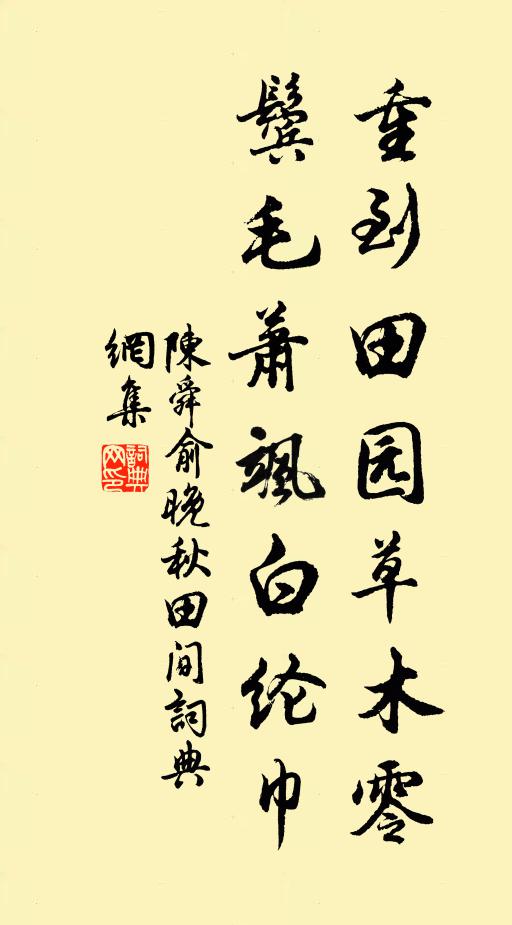 重到田园草木零
鬓毛萧飒白纶巾
陳舜俞晚秋田间詞典
網集
詞典网印